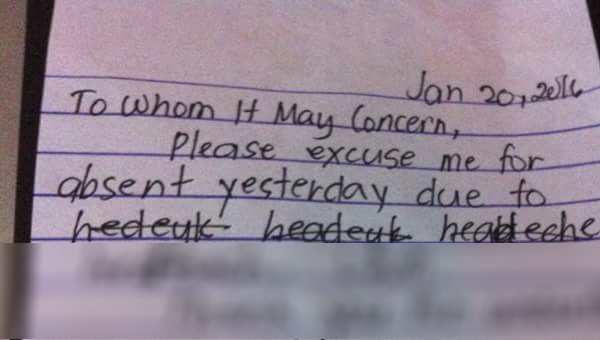 Jan 20, 2016
To Whom It May Concern,
Please excuse me for
absent yesterday due to
hedeuk headeuk headeche